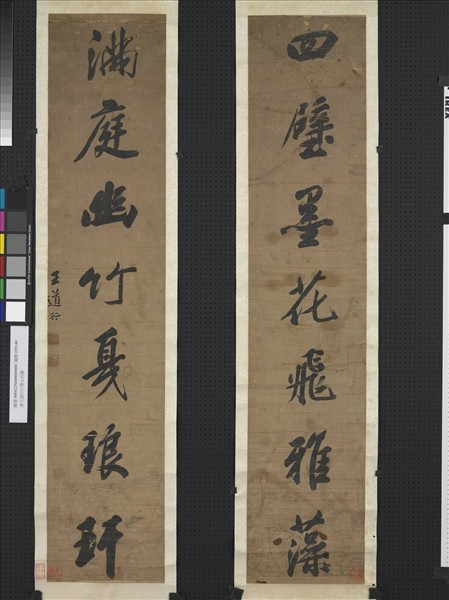 四壁墨花飛雅藻
滿庭幽竹戛琅玕
王道行